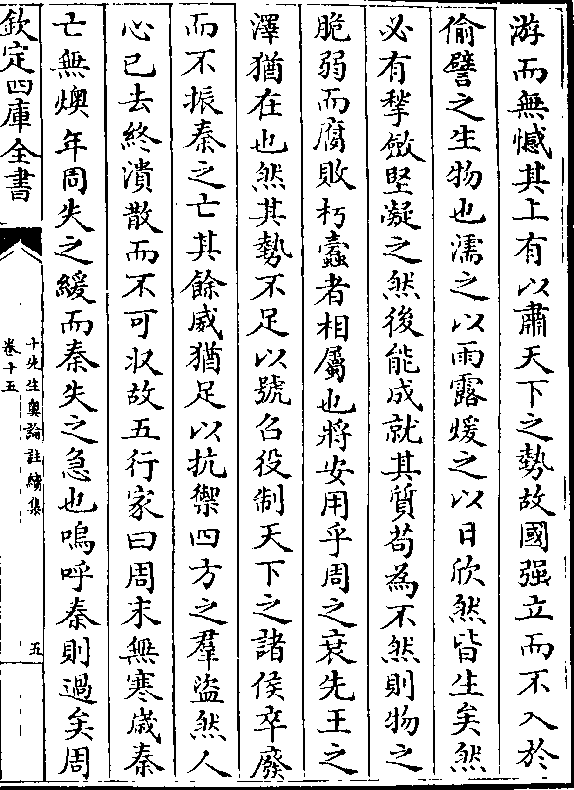 游而無憾其上有以肅天下之勢故國强立而不入於
偷譬之生物也濡之以雨露煖之以日欣然皆生矣然
必有揫斂堅凝之然後能成就其質茍為不然則物之
脆弱而腐敗朽蠧者相屬也將安用乎周之衰先王之
澤猶在也然其勢不足以號召役制天下之諸侯卒廢
而不振秦之亡其餘威猶足以抗禦四方之羣盜然人
心已去終潰散而不可収故五行家曰周末無寒嵗秦
亡無燠年周失之緩而秦失之急也嗚呼秦則過矣周
欽定四庫全書
十先生奥論註續集
卷十五
五